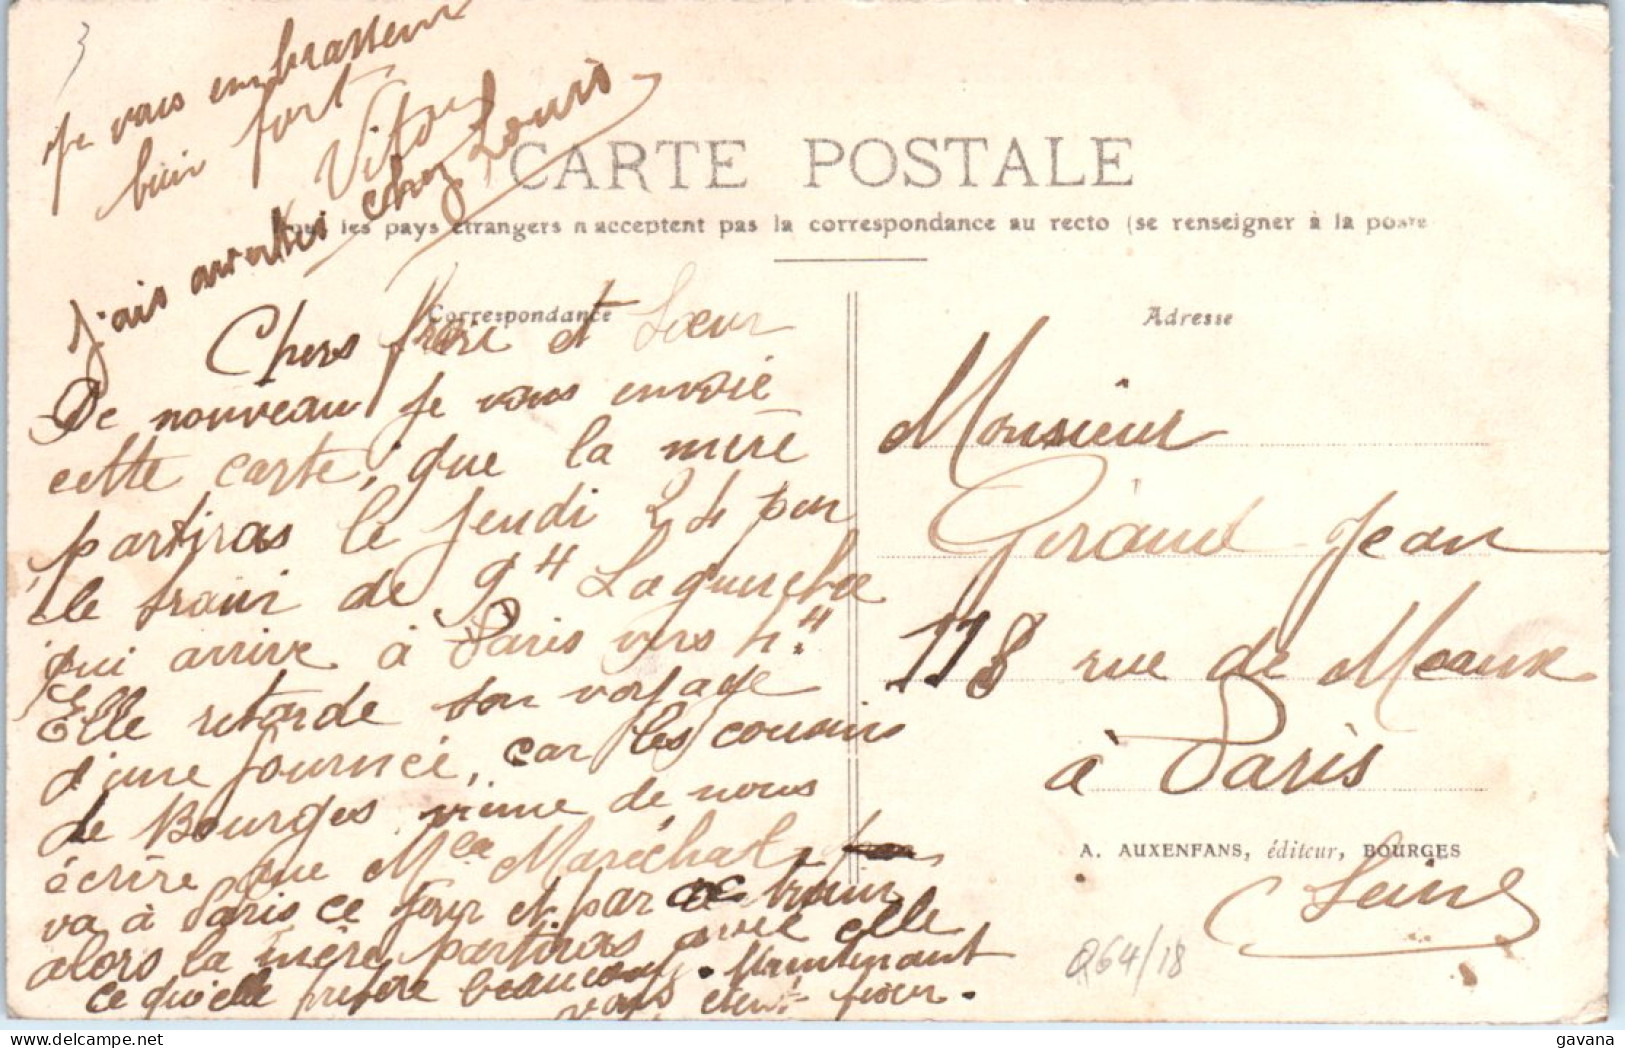 3
Je vous embrassent
bien fort
Vitou
j'ais chez Louis
CARTE POSTALE
les pays étrangers n acceptent pas la correspondance au recto (se renseigner à la poste
Correspondance
Chers frère et Sœur
De nouveau je vous envoie
cette carte, que la mère
partiras le jeudi 24 par
le train de 9H Laguerche
qui arrive à Paris vers 4H.
Elle retarde son voyage
d'une journée, car les cousins
de Bourges vienne de nous
écrire que Maréchat
va à Paris ce jour et par ce train
alors la mère partiras avec elle
ce qu'elle préfère beaucoup. Maintenant
vous pour.
Adresse
Monsieur
Géraud Jean
118 rue de Meaux
à Paris
A. AUXENFANS, éditeur, BOURGES
Seine
Q64/18
www.delcampe.net
gavana